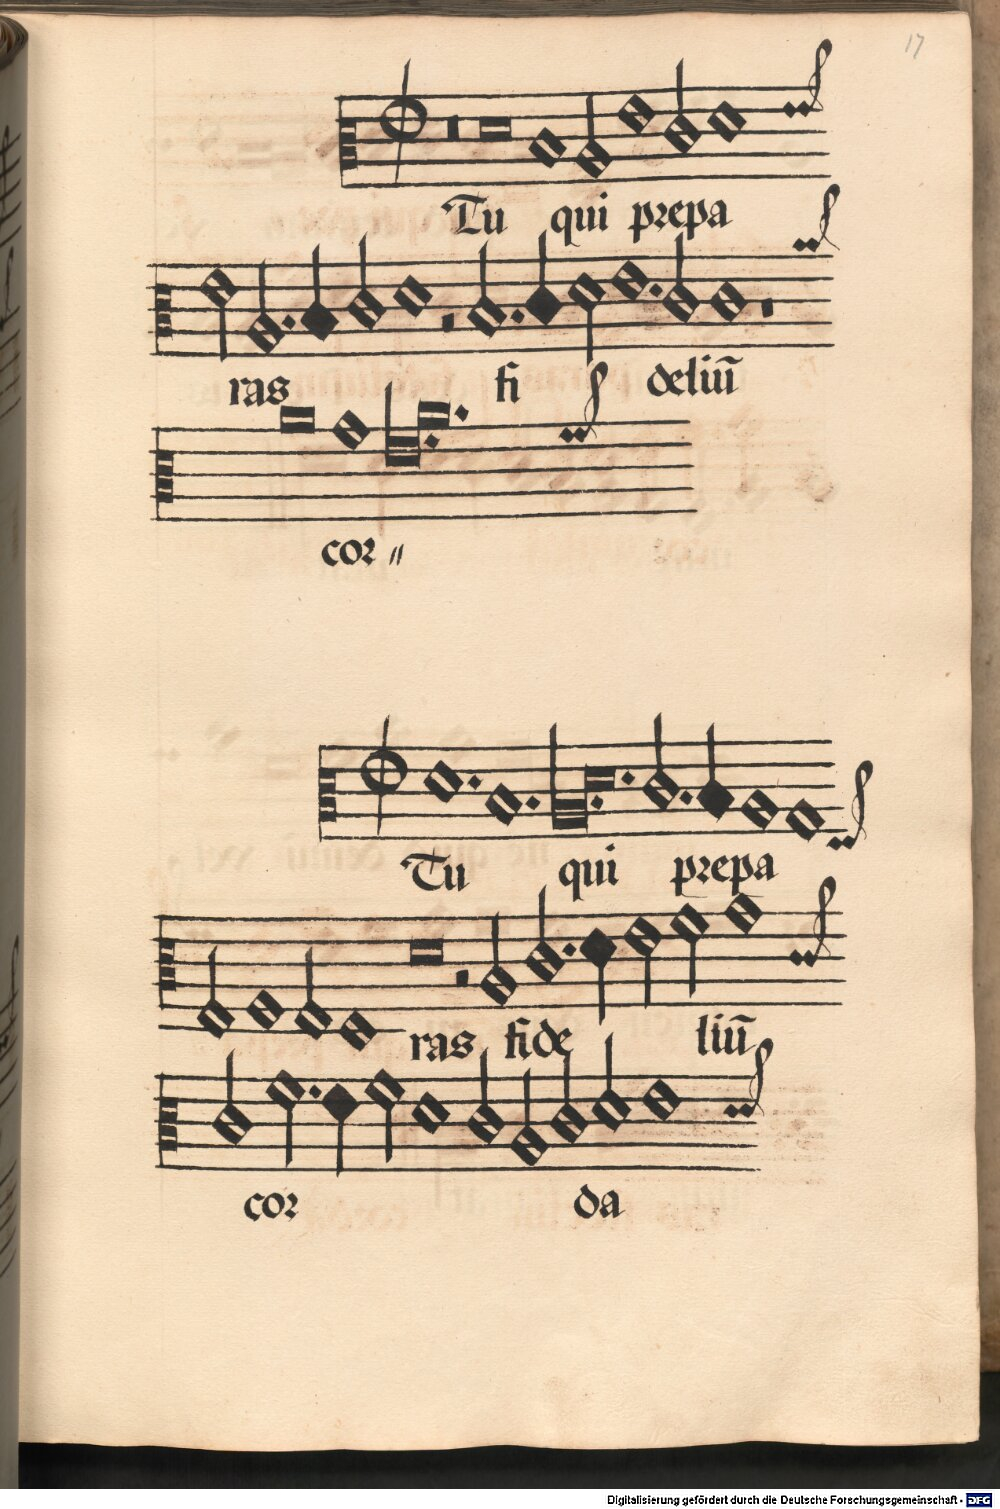 17
Tu qui prepa
ras fi deliū
cor〃
Tu qui prepa
ras fide liū
cor da
Digitalisierung gefördert durch die Deutsche Forschungsgemeinschaft - DFG